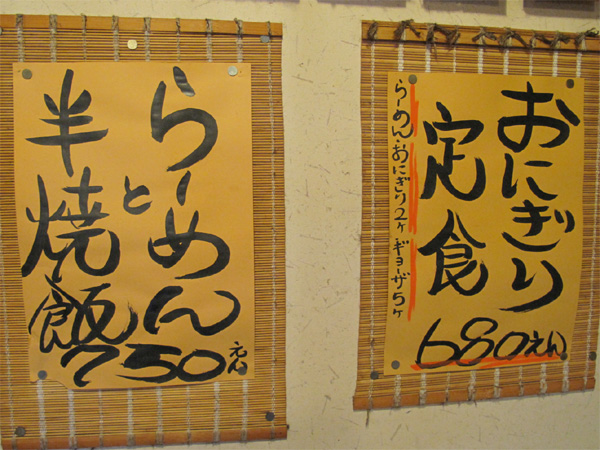 おにぎり
定食
らーめん・おにぎり2ヶ・ギョーザ5ヶ
680えん
らーめん
と
半焼飯
750えん